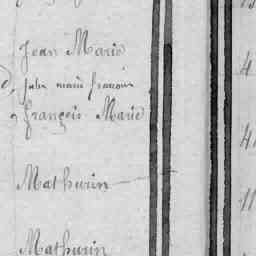 Jean Marie
Jean marie francois
françois Marie
Mathurin
Mathurin